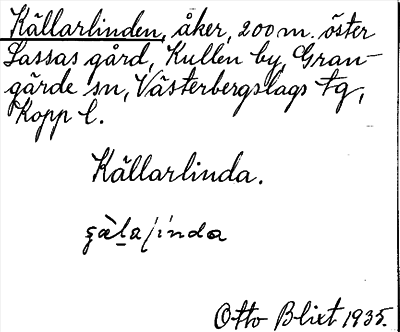 Källarlinden, åker, 200 m. öster
Lassas gård, Kullen by, Gran-
gärde sn, Västerbergslags tg,
Kopp. l.
Källarlinda.
Otto Blixt 1935.